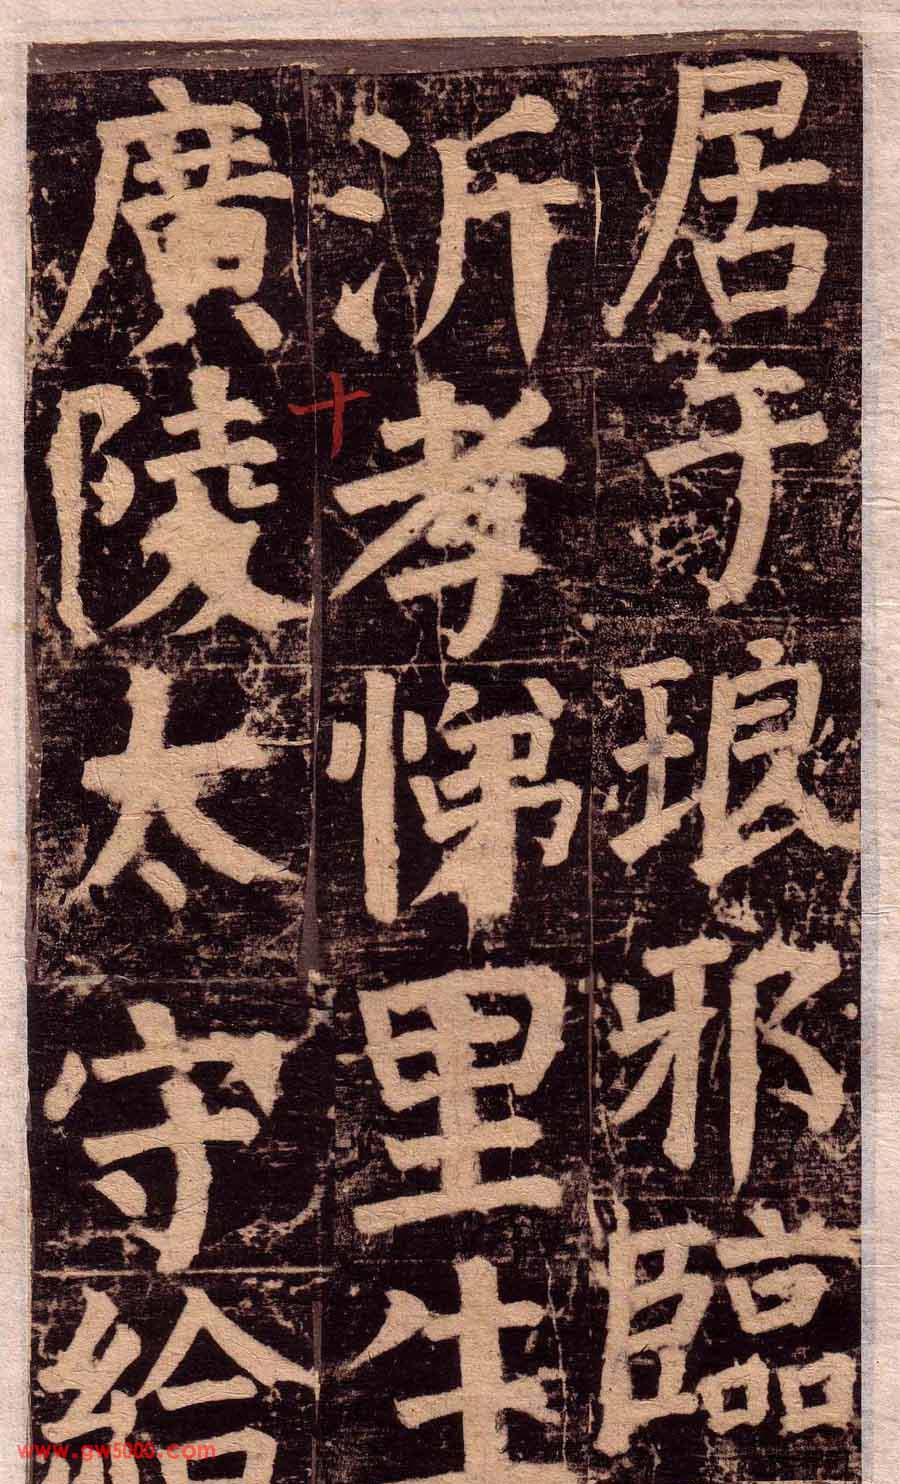 居于琅邪臨
沂孝悌里生
廣陵太守給
十
www.gw5000.com